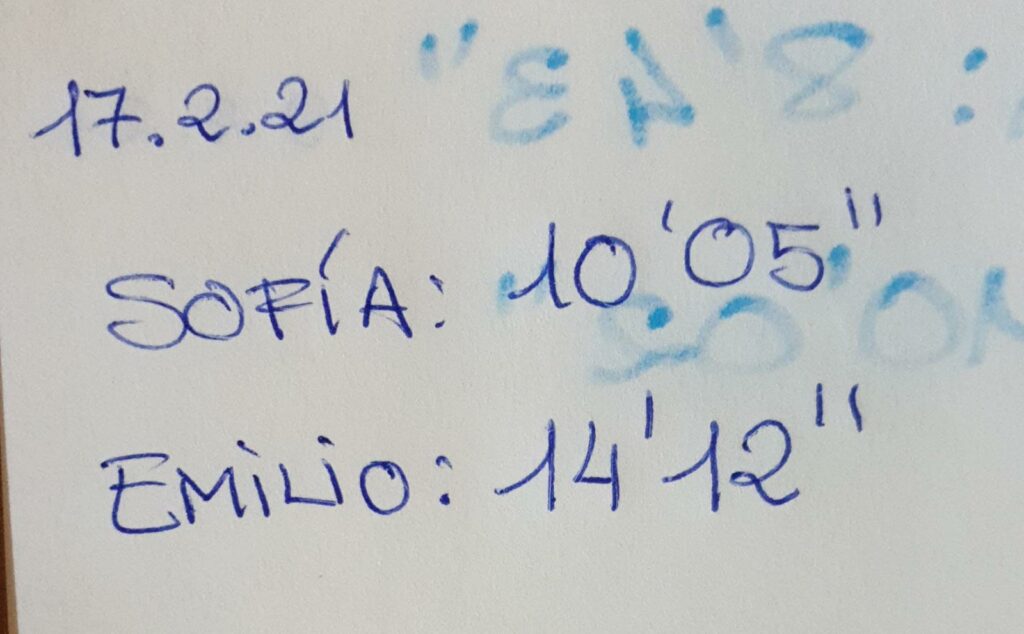 17.2.21
SOFÍA: 10'05"
EMILIO: 14'12"